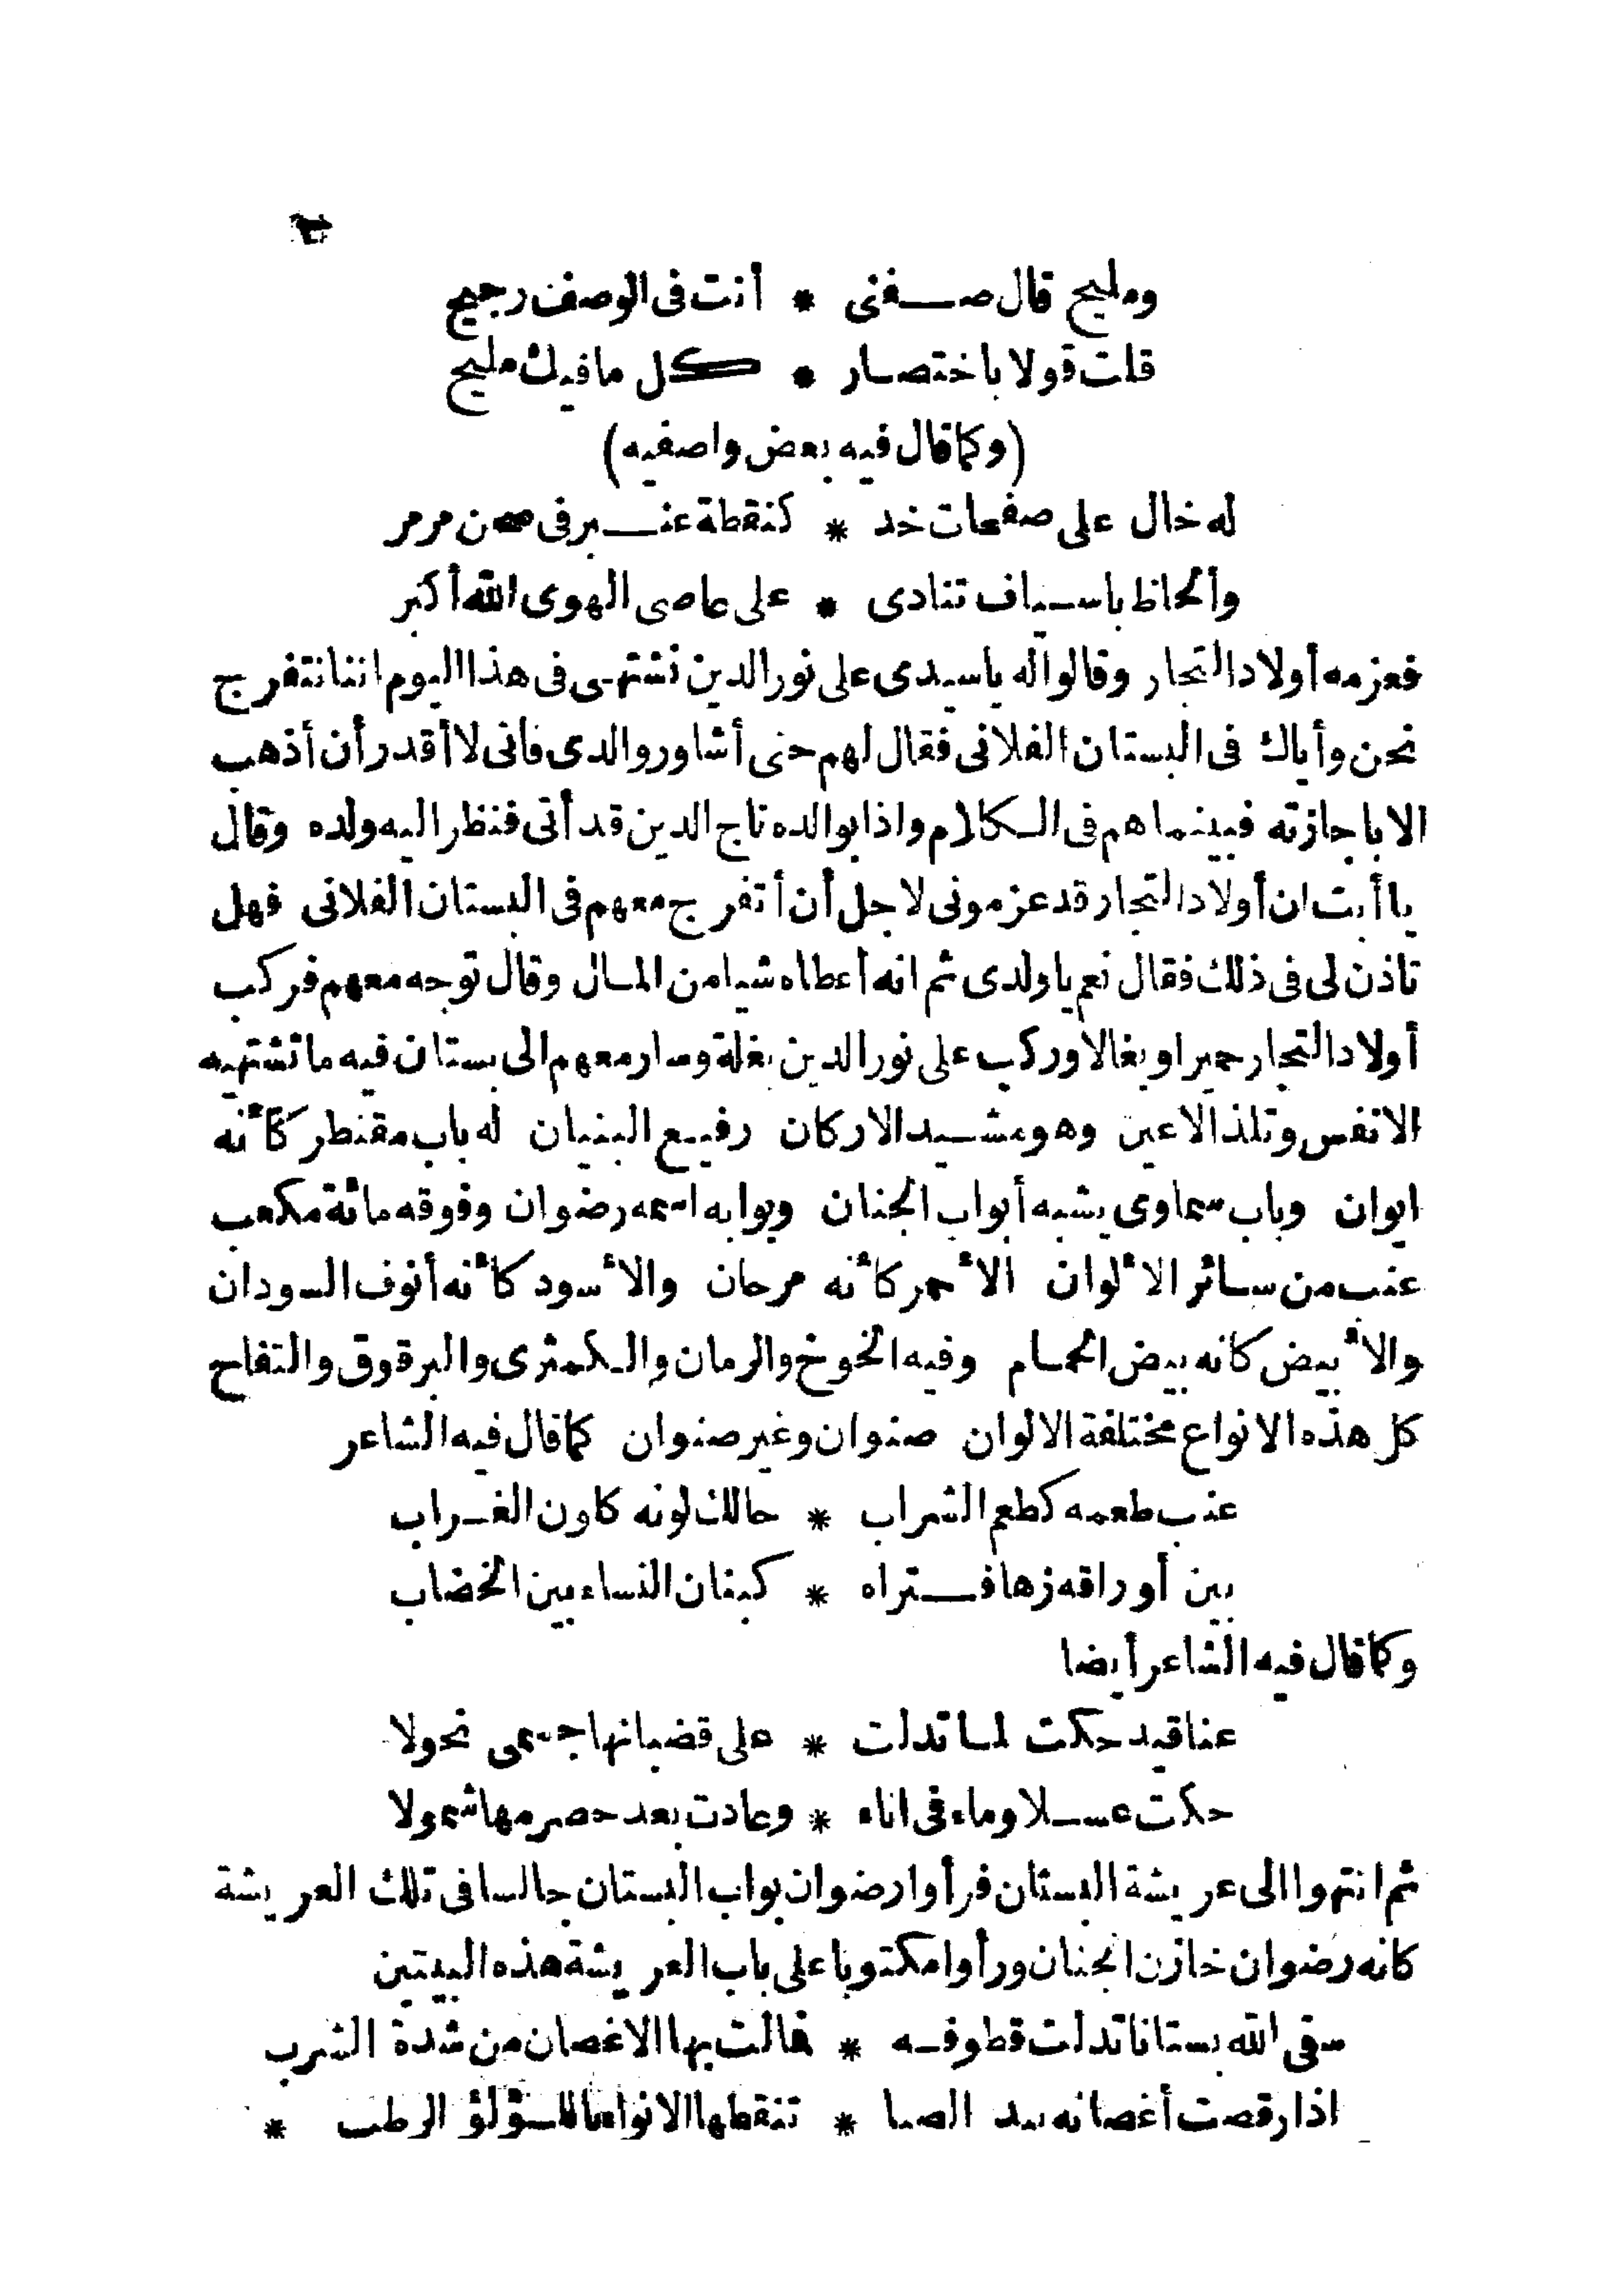 ومليح قال صفني * أنت فى الوصف رجيح
قلت قولا باختصار * كل ما فيك مليح
(وكما قال فيه بعض واصفيه)
له خال على صفحات خد * كنقطة عنبر فى صحن مرمر
وألحاظ باسياف تنادى * على عاصى الهوى الله أكبر
فعزمه أولاد التجار وقالوا له ياسيدى على نور الدين نشتهى فى هذا اليوم اننا نتفرج
نحن وأياك فى البستان الفلانى فقال لهم حتى أشاور والدى فانى لا أقدر أن أذهب
الا باجازته فبينما هم فى الكلام واذا بوالده تاج الدين قد أتى فنظر اليه ولده وقال
يا أبت ان أولاد التجار قد عزمونى لاجل أن أتفرج معهم فى البستان الفلانى فهل
تاذن لى فى ذلك فقال نعم ياولدى ثم انه أعطاه شيا من المال وقال توجه معهم فركب
أولاد التجار حميرا وبغالا وركب على نور الدين بغلة وسار معهم الى بستان فيه ماتشتهيه
الانفس وتلذ الاعين وهو مشيد الاركان رفيع البنيان له باب مقنطر كأنه
ايوان وباب سماوى يشبه أبواب الجنان وبوابه اسمه رضوان وفوقه مائة مكعب
عنب من سائر الألوان الأحمر كأنه مرجان والأسود كأنه أنوف السودان
والأبيض كانه بيض الحمام وفيه الخوخ والرمان والكمثرى والبرقوق والتفاح
كل هذه الانواع مختلفة الالوان صنوان وغير صنوان كما قال فيه الشاعر
عنب طعمه كطعم الشراب * حالك لونه كلون الغراب
بين أوراقه زها فتراه * كبنان النساء بين الخضاب
وكما قال فيه الشاعر أيضا
عناقيد حكت لما تدلت * على قضبانها جسمى نحولا
حكت عسلا وماء فى اناء * وعادت بعد حصرمها شمولا
ثم انتهوا الى عريشة البستان فرأوا رضوان بواب البستان جالسا فى تلك العريشة
كانه رضوان خازن الجنان ورأوا مكتوبا على باب العريشة هذه البيتين
سقى الله بستانا تدلت قطوفه * فمالت بها الاغصان من شدة الشرب
اذا رقصت أغصانه بيد الصبا * تنقطها الانواء باللؤلؤ الرطب *